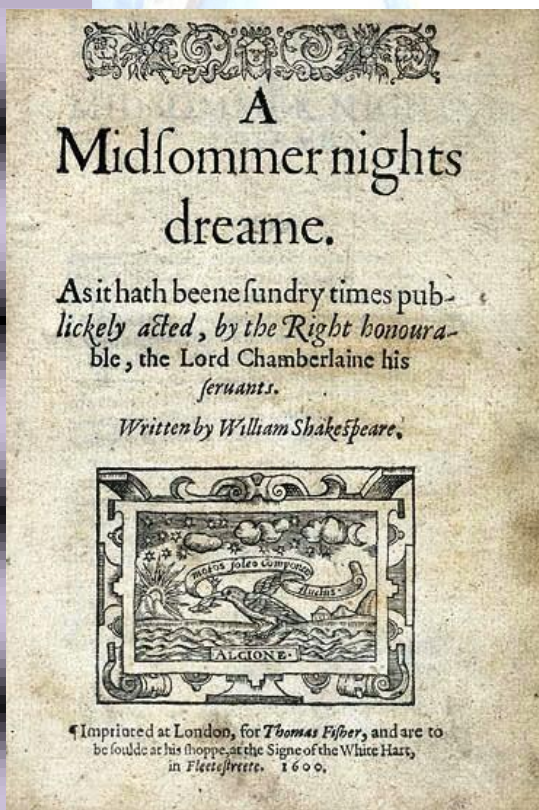 A
Midſommer nights
dreame.
As it hath beene ſundry times pub-
lickely acted, by the Right honoura-
ble, the Lord Chamberlaine his
ſeruants.
Written by William Shakeſpeare.
motos ſoleo Componere
fluctus.
ALCIONE.
¶Imprinted at London, for Thomas Fiſher, and are to
be ſoulde at his ſhoppe, at the Signe of the White Hart,
in Fleeteſtreete. 1600.